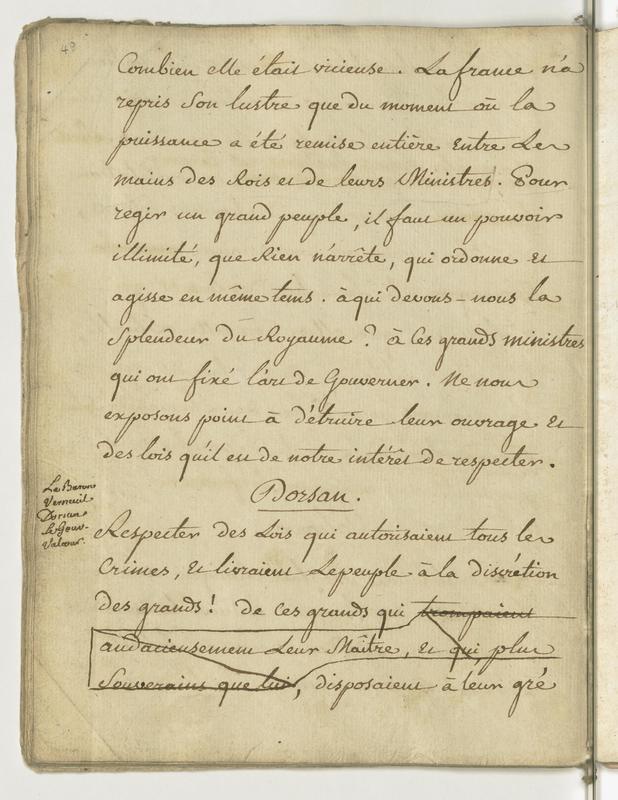 48
Combien elle était vicieuse. La france n'a
repris Son lustre que du moment où la
puissance a été remise entière Entre Les
mains des Rois et de leurs Ministres. Pour
regir un grand peuple, il faut un pouvoir
illimité, que Rien n'arrête, qui ordonne Et
agisse en même tems. à qui devons-nous la
Splendeur du Royaume ? à Ces grands ministres
qui ont fixé l'art de Gouverner. Ne nous
exposons point à détruire leur ouvrage Et
des lois qu'il est de notre intérêt de respecter.
Dorsan.
Le Baron
Verneuil
Dorsan
Le Gouv-
Valcour.
Respecter des Lois qui autorisaient tous les
Crimes, Et livraient Le peuple à la discrétion
des grands! De Ces grands qui trompaient
audacieusement Leur Maître, Et qui plus
Souverains que lui, disposaient à leur gré